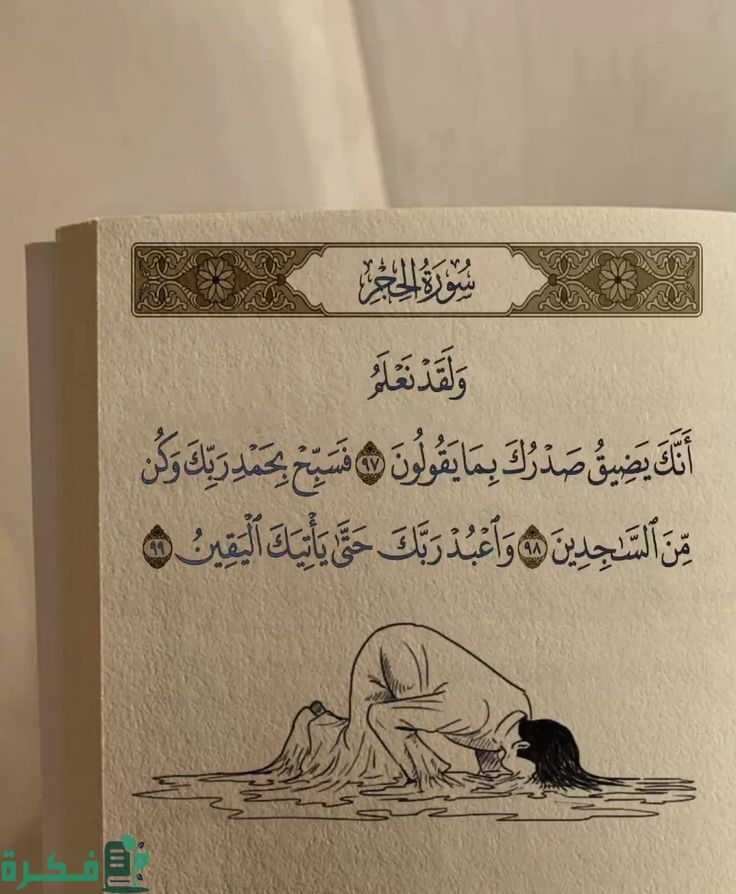 سُورَةُ الحِجْرِ
وَلَقَدْ نَعْلَمُ
أَنَّكَ يَضِيقُ صَدْرُكَ بِمَا يَقُولُونَ ٩٧ فَسَبِّحْ بِحَمْدِ رَبِّكَ وَكُن
مِّنَ ٱلسَّٰجِدِينَ ٩٨ وَٱعْبُدْ رَبَّكَ حَتَّىٰ يَأْتِيَكَ ٱلْيَقِينُ ٩٩
فكرة